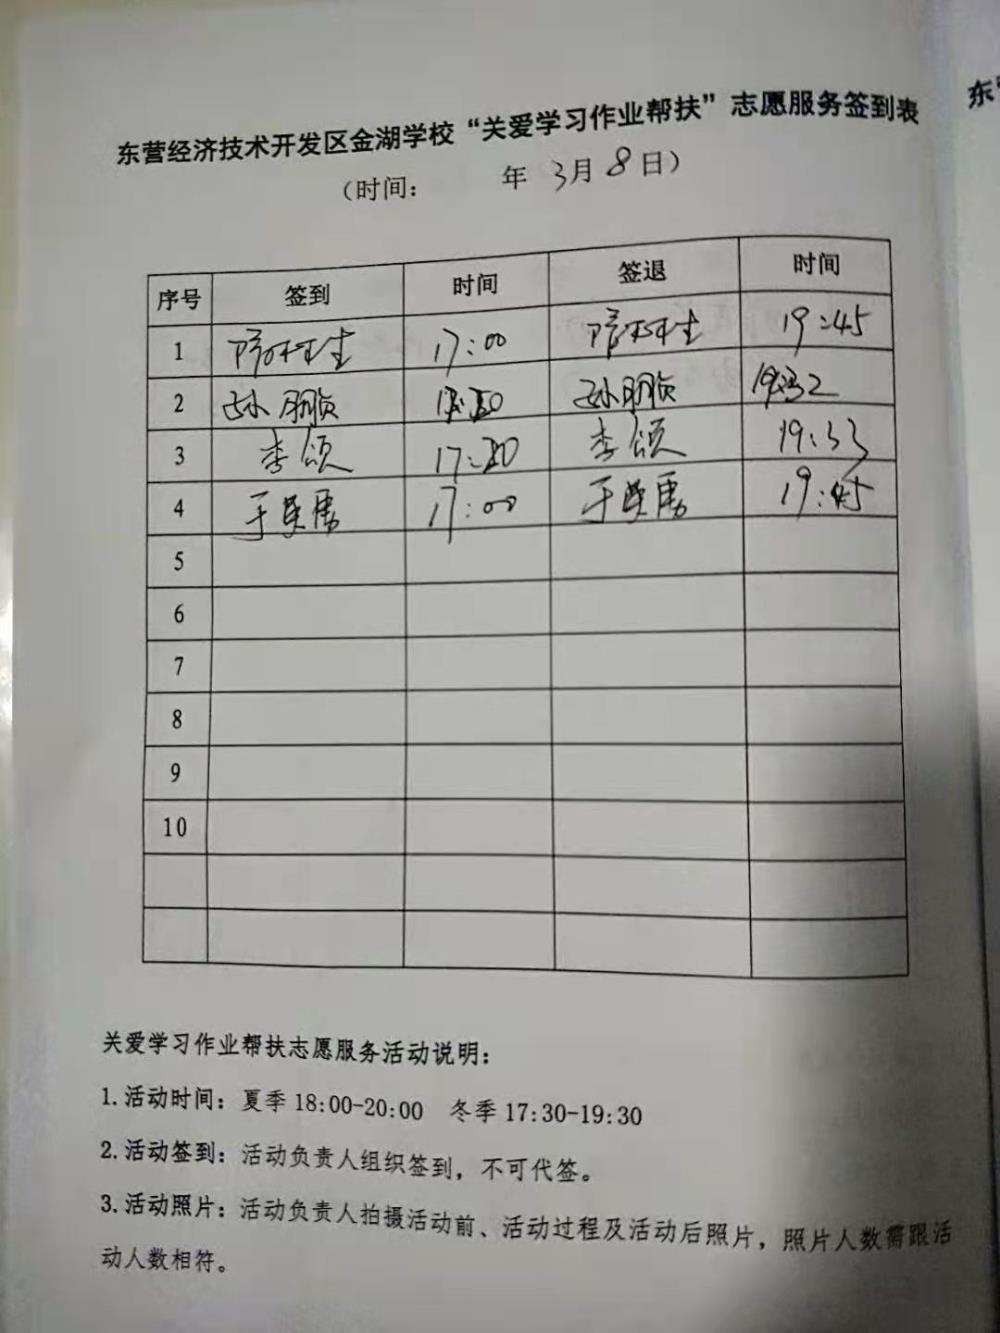 东营经济技术开发区金湖学校“关爱学习作业帮扶”志愿服务签到表
东
（时间： 年 3月8日）
序号 签到 时间 签退 时间
1 17:00 19:45
2 孙鹏 孙鹏 19:32
3 李颂 17:20 李颂 19:33
4 于 17:00 于 19:45
5
6
7
8
9
10
关爱学习作业帮扶志愿服务活动说明：
1.活动时间：夏季18:00-20:00 冬季17:30-19:30
2.活动签到：活动负责人组织签到，不可代签。
3.活动照片：活动负责人拍摄活动前、活动过程及活动后照片，照片人数需跟活
动人数相符。